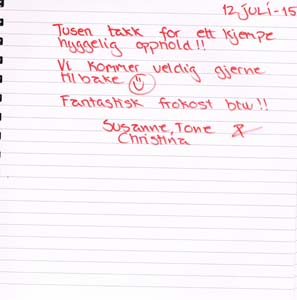 12 JULI-15
Tusen takk for ett kjempe
hyggelig opphold!!
Vi kommer veldig gjerne
tilbake
Fantastisk frokost btw!!
Susanne, Tone &
Christina